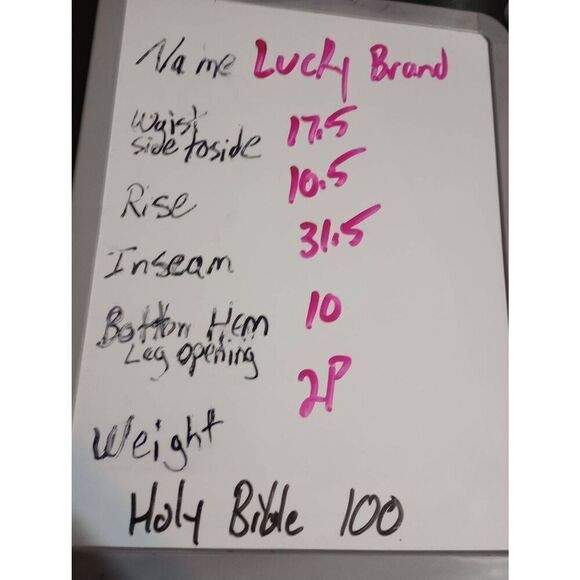 Name Lucky Brand
Waist 17.5
side toside
Rise 10.5
Inseam 31.5
Bottom Hem 10
Leg opening
Weight 2P
Holy Bible 100